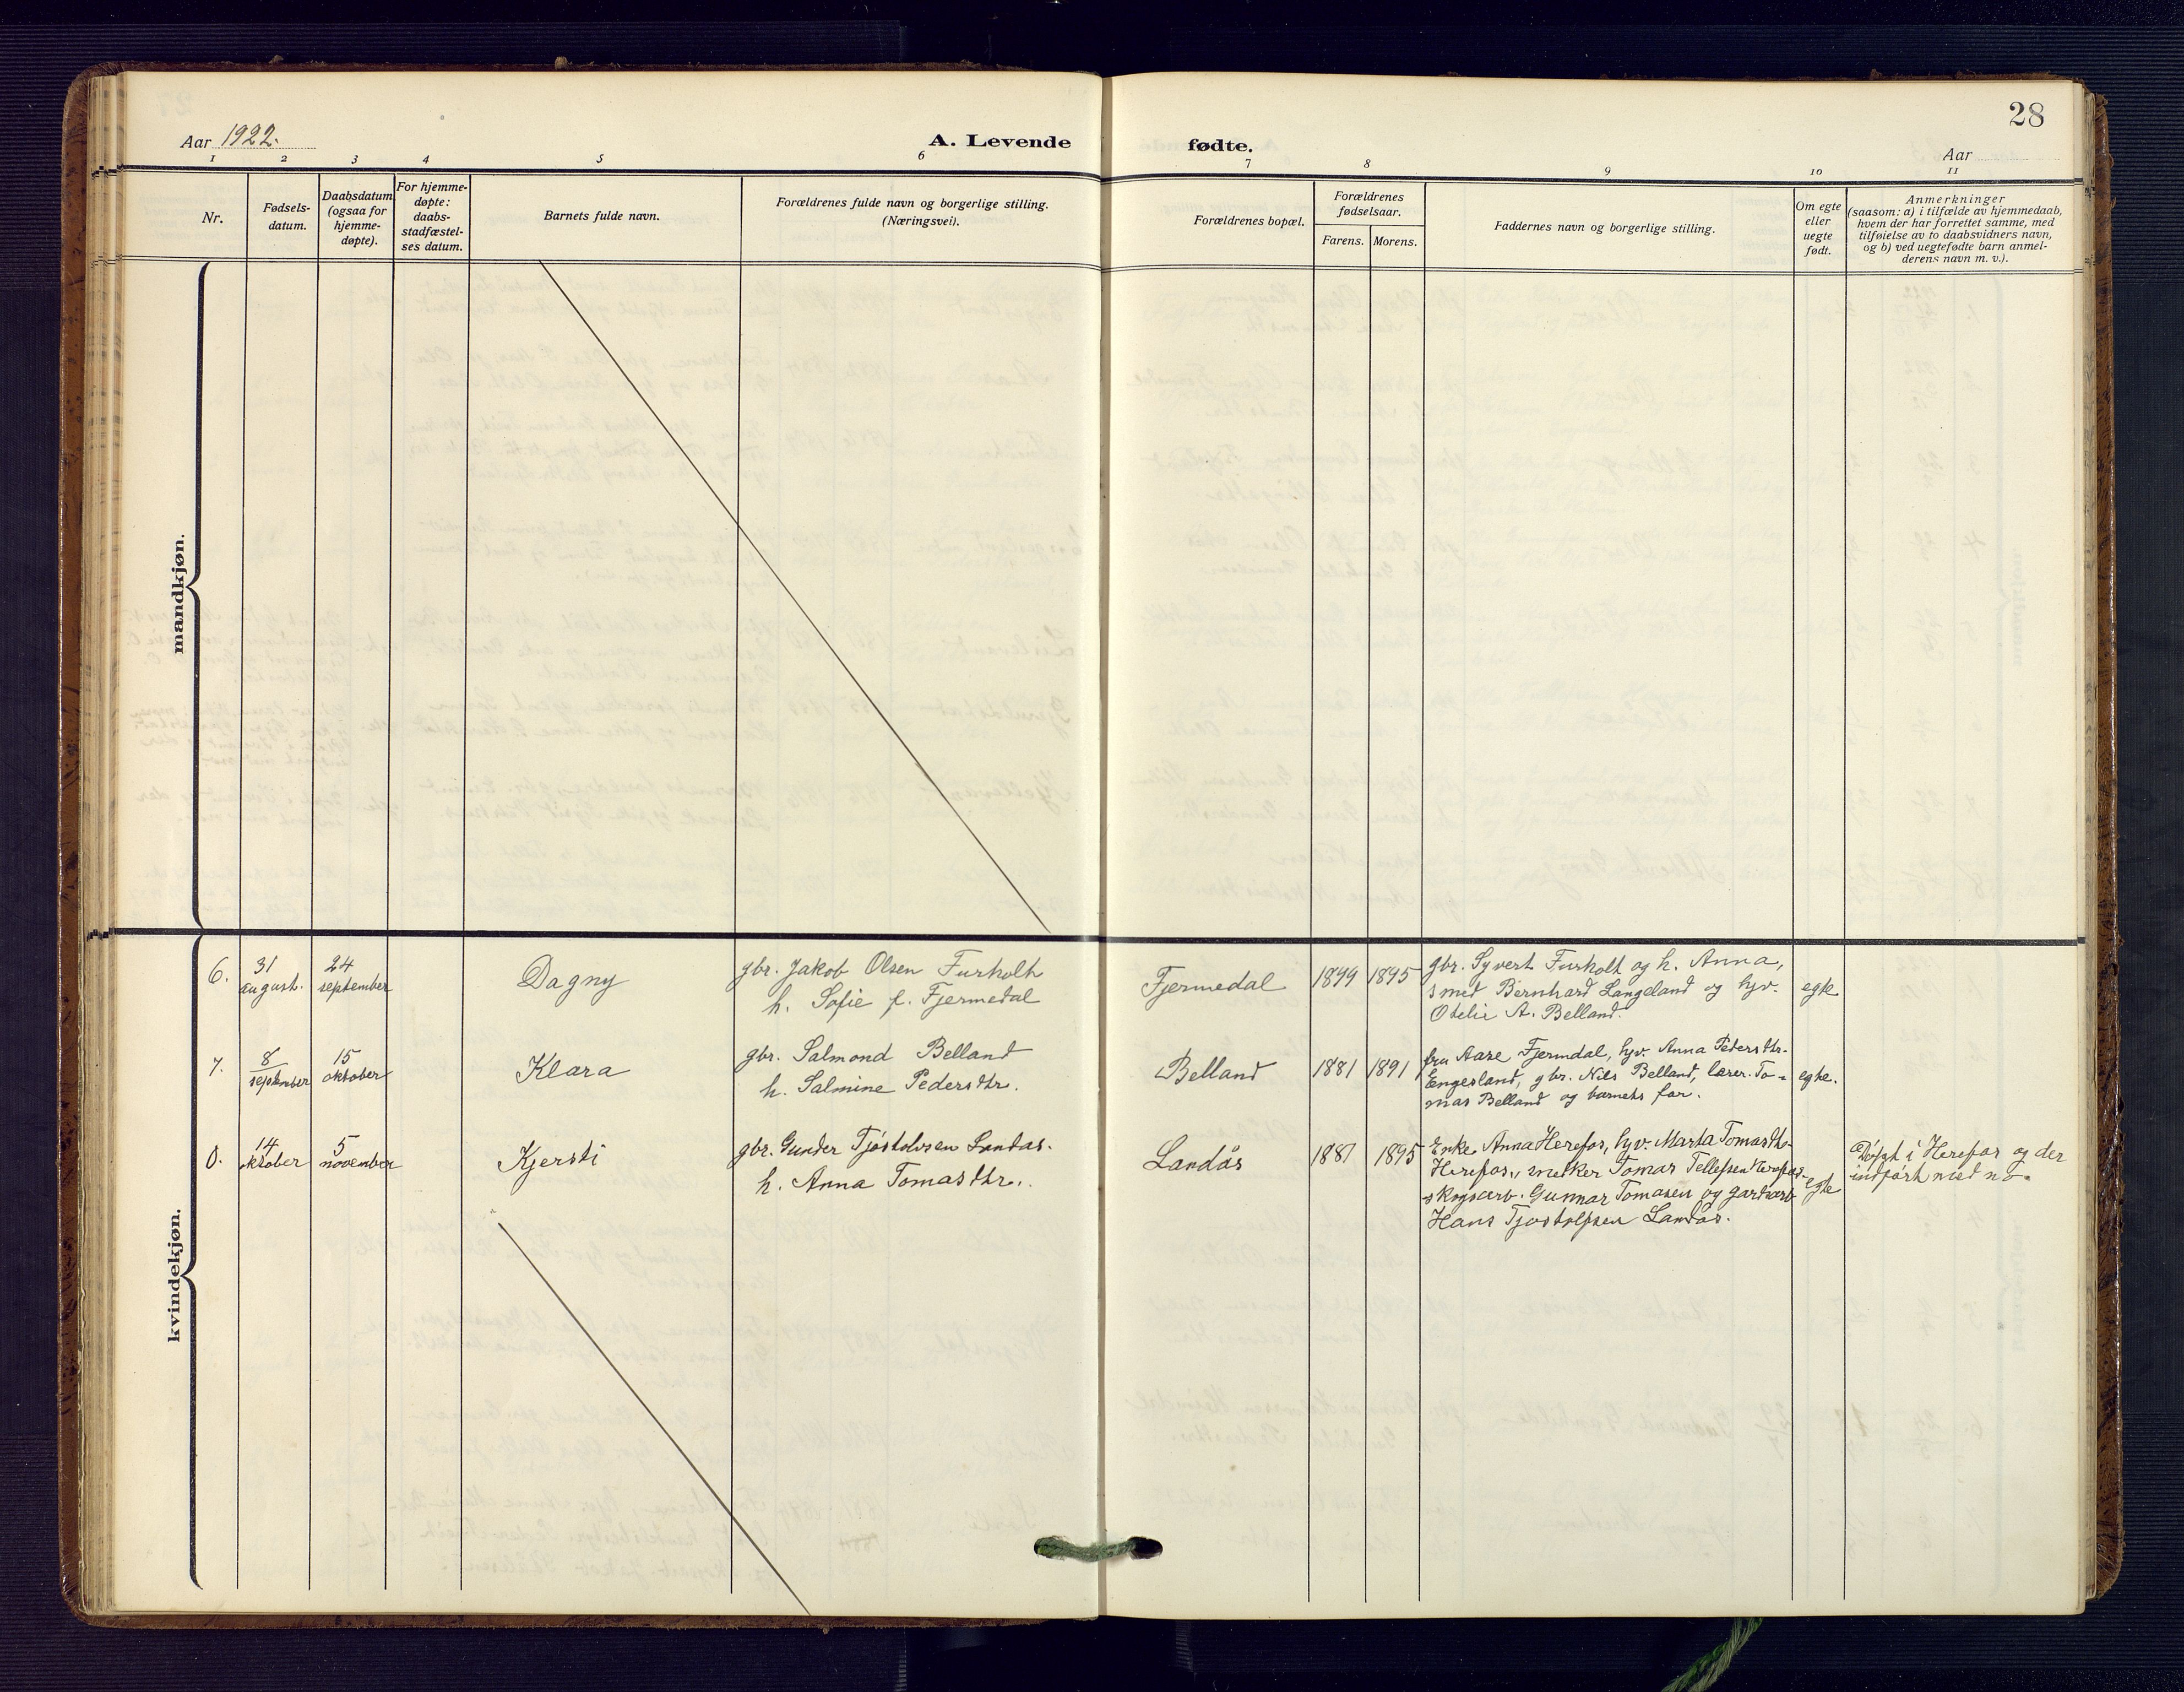 28
Aar 1922.
A. Levende fødte.
Aar
1 2 3 4 5 6 7 8 9 10 11
Nr.
Fødsels-
datum.
Daabsdatum
(ogsaa for
hjemme-
døpte).
For hjemme-
døpte:
daabs-
stadfæstel-
ses datum.
Barnets fulde navn.
Forældrenes fulde navn og borgerlige stilling.
(Næringsvei).
Forældrenes bopæl.
Forældrenes
fødselsaar.
Farens. Morens.
Faddernes navn og borgerlige stilling.
Om egte
eller
uegte
født.
Anmerkninger
(saasom: a) i tilfælde av hjemmedaab,
hvem der har forrettet samme, med
tilføielse av to daabsvidners navn,
og b) ved uegtefødte barn anmel-
derens navn m. v.).
mandkjøn.
kvindekjøn.
6.
31
august.
24
september
Dagny
gbr. Jakob Olsen Furholt
h. Sofie f. Fjermedal
Fjermedal
1899 1895
gbr. Syvert Furholt og h. Anna,
smed Bernhard Langeland og hjv.
Otelie A. Belland.
egte
7.
8
september
15
oktober
Klara
gbr. Salmond Belland
h. Salmine Pedersdtr.
Belland
1881 1891
fru Aase Fjermdal, hjv. Anna Pedersdtr.
Engesland, gbr. Nils Belland, lærer To-
mas Belland og barnets far.
egte.
8.
14
oktober
5
november
Kjersti
gbr. Gunder Tjøstolvsen Landås.
h. Anna Tomasdtr.
Landås
1887 1895
Enke Anna Herefos, hjv. Marta Tomasdtr.
Herefos, Tomas Tellefsen Herefos,
skogsarb. Gunnar Tomasen og gardsarb
Hans Tjostolfsen Landås.
egte
Døpt i Herefos og der
indført med no.